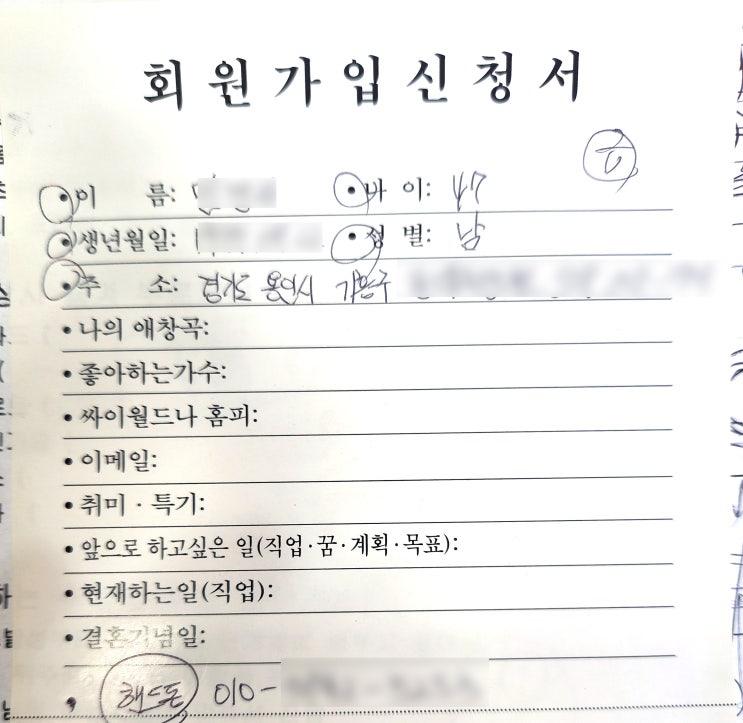 회원가입신청서
•이 름: •나 이: 47
•생년월일: •성 별: 남
•주 소: 경기도 용인시 기흥구
•나의 애창곡:
•좋아하는가수:
•싸이월드나 홈피:
•이메일:
•취미·특기:
•앞으로 하고싶은 일(직업·꿈·계획·목표):
•현재하는일(직업):
•결혼기념일:
• 핸드폰 010-